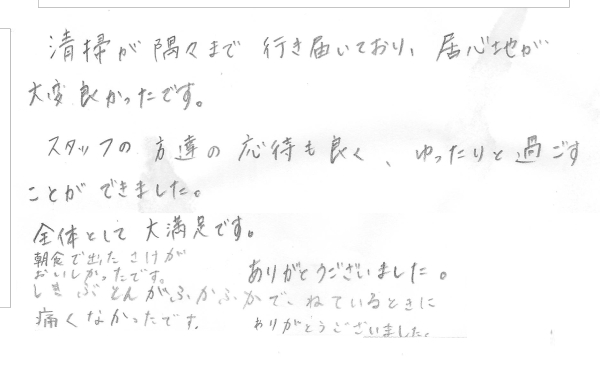 清掃が隅々まで行き届いており、居心地が
大変良かったです。
スタッフの方達の応待も良く、ゆったりと過ごす
ことができました。
全体として大満足です。
朝食で出たさけが
おいしかったです。
ありがとうございました。
しきぶとんがふかふかで、ねているときに
痛くなかったです。
ありがとうございました。